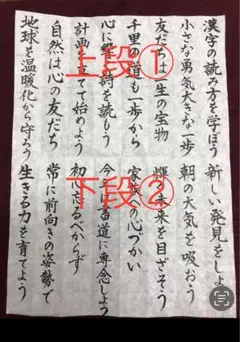 上段①
漢字の読み方を学ぼう
小さな勇気大きな一歩
友だちは一生の宝物
千里の道も一歩から
心に詩を読もう
計画を立てて始めよう
自然は心の友だち
地球を温暖化から守ろう
下段②
新しい発見をしよう
朝の大気を吸おう
輝く未来を目ざそう
家族への心づかい
書道に専念しよう
初心忘るべからず
常に前向きの姿勢で
生きる力を育てよう